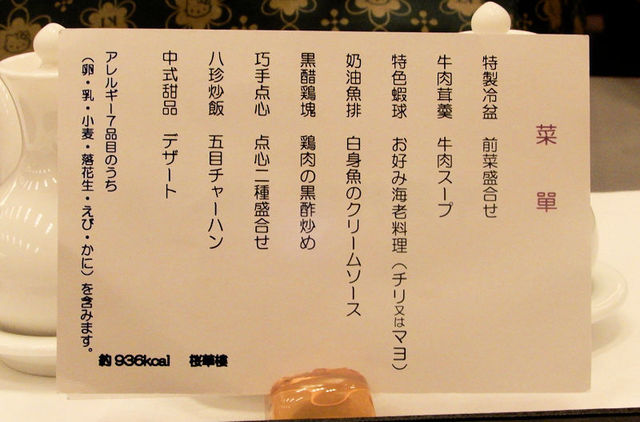 菜單
特製冷盆 前菜盛合せ
牛肉茸羹 牛肉スープ
特色蝦球 お好み海老料理(チリ又はマヨ)
奶油魚排 白身魚のクリームソース
黒醋鶏塊 鶏肉の黒酢炒め
巧手点心 点心二種盛合せ
八珍炒飯 五目チャーハン
中式甜品 デザート
アレルギー7品目のうち
(卵・乳・小麦・落花生・えび・かに)を含みます。
約936kcal 桜華樓